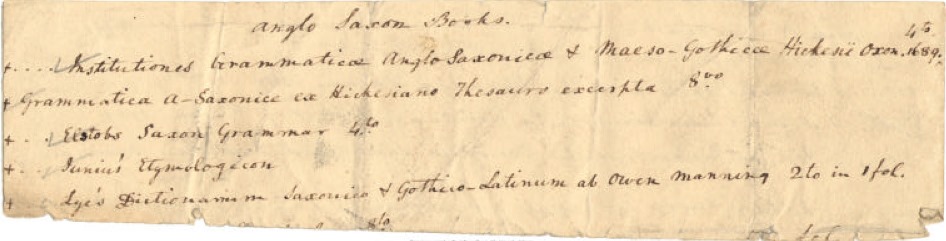 Anglo Saxon Books.
+ .... Institutiones Grammaticæ Anglo-Saxonicæ & Maeso-Gothicæ Hickesii Oxon. 1689. 4to.
+ Grammatica A-Saxonice ex Hickesiano Thesauro excerpta 8vo
+ ... Elstobs Saxon Grammar 4to
+ ... Junius's Etymologicon
+ ... Lye's Dictionarium Saxonico & Gothico-Latinum ab Owen Manning 2 to in 1 fol.
8vo